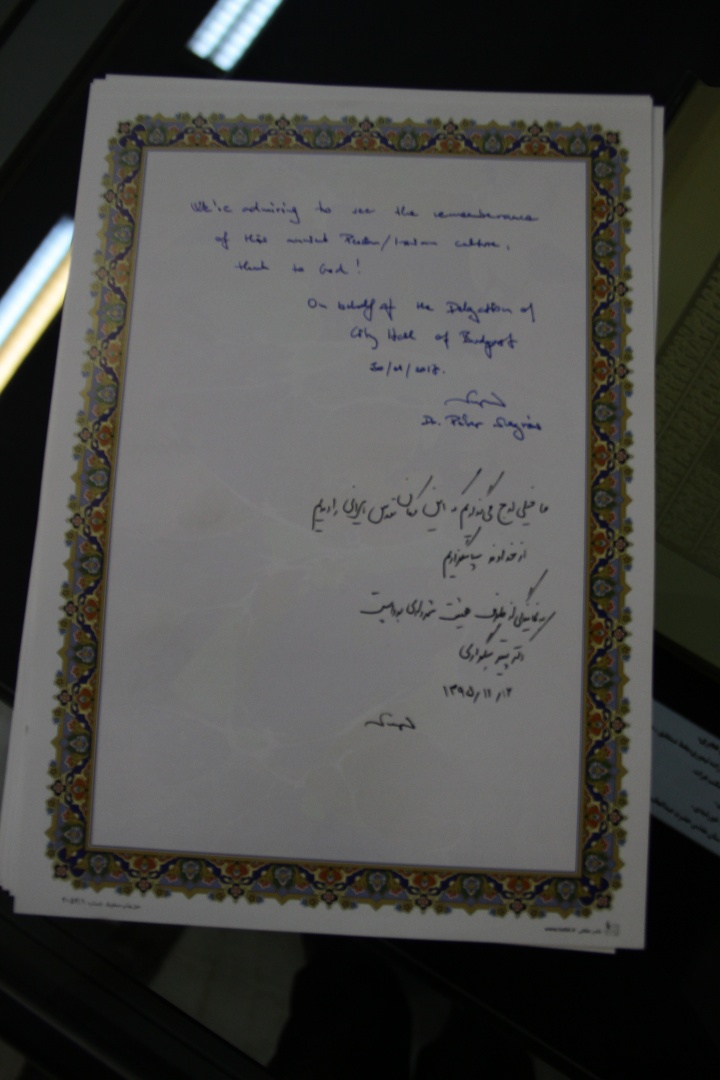 We're admiring to see the rememberance
of this ancient Persian/Iranian culture,
thank to God!
On behalf of the Delegation of
City Hall of Budapest
30/01/2017.
Dr. Péter
ما خیلی ارج می‌گذاریم که این مکان مقدس ایرانی را دیدیم
از خداوند سپاسگزاریم
به نمایندگی از طرف هیئت شهرداری بوداپست
دکتر پیتر
۱۳۹۵/۱۱/۱۲